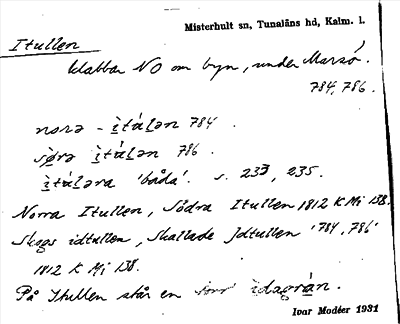 Misterhult sn, Tunaläns hd, Kalm. l.
Itullen
klabbar NO om byn, under Marsö.
784, 786.
norə - ìtálən 784.
sørə ìtálən 786.
ìtáləra 'båda'. s. 233, 235.
Norra Itullen, Södra Itullen 1812 K Mi 138.
Skogs idtullen, Skallade Jdtullen 784, 786
1812 K Mi 138.
På Itullen står en idəgrán.
Ivar Modéer 1931